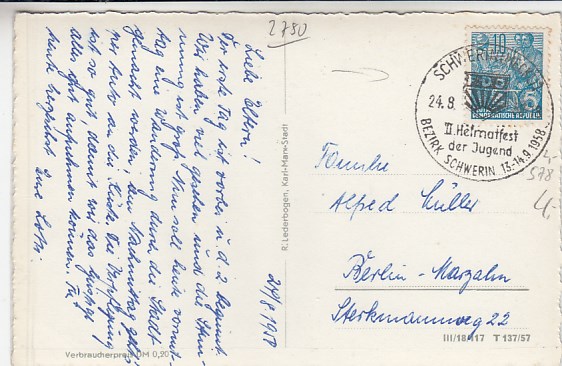 2780
Liebe Eltern!
Der erste Tag ist vorbei u. d. 2. beginnt.
Wir haben viel gesehen und die Stim-
mung ist groß. Nun soll heute vormit-
tag eine Wanderung durch die Stadt
gemacht werden, am Nachmittag geht's
per Auto an die Küste. Die Verpflegung
ist so gut, damit wir das Geistige
alles gut aufnehmen können. Für
heute herzlichst Eure
24/8 1958
R. Lederbogen, Karl-Marx-Stadt
Verbraucherpreis DM 0,20
SCHWERIN
24.8.
II. Heimatfest
der Jugend
BEZIRK SCHWERIN 13.-14.9.1958
10
DEUTSCHE DEMOKRATISCHE REPUBLIK
578
4,-
Familie
Alfred Müller
Berlin-Marzahn
22
III/18/117 T 137/57